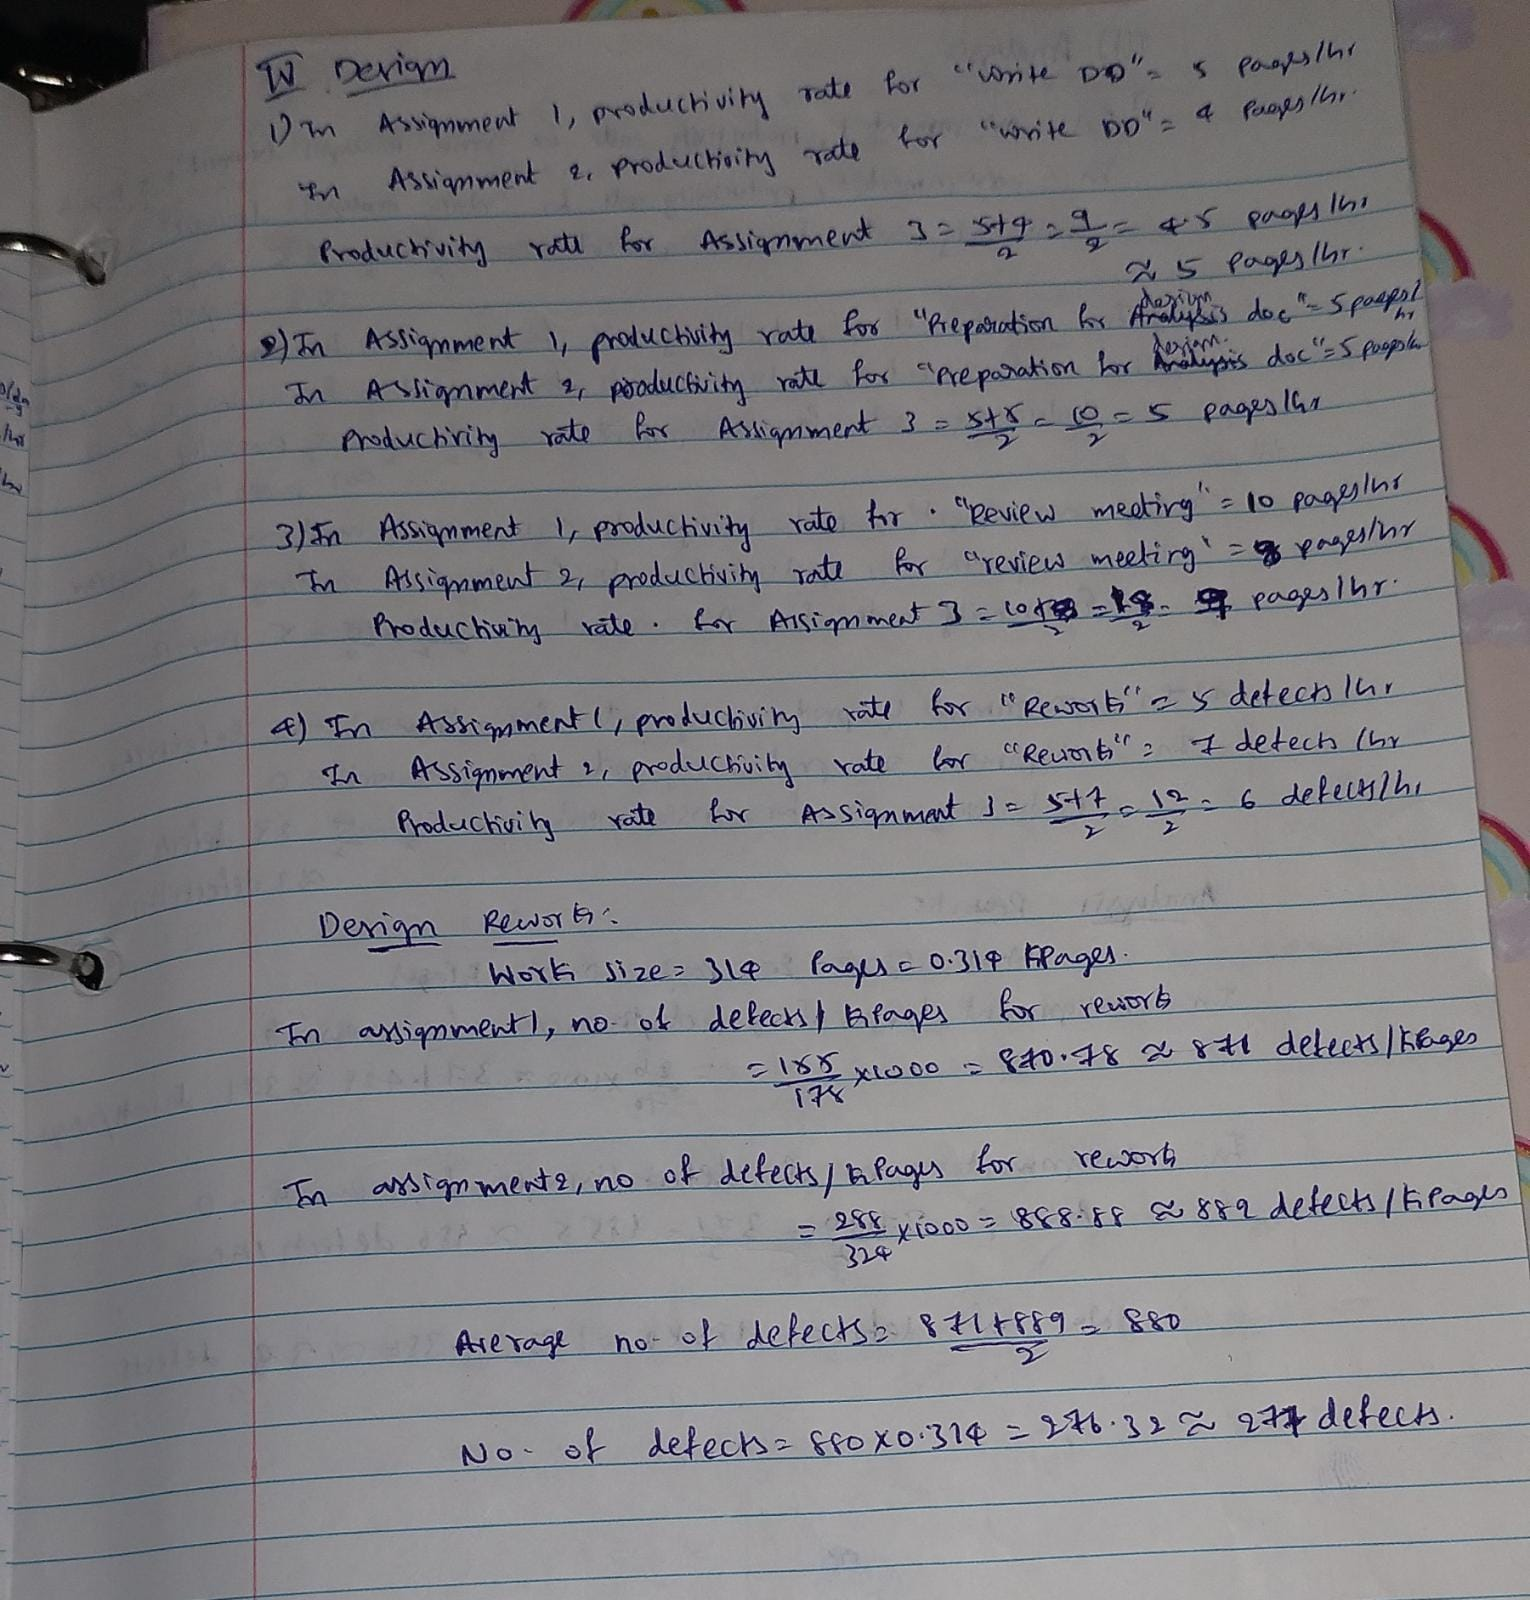 IV Design
1) In Assignment 1, productivity rate for "write DD" = 5 pages/hr
In Assignment 2, productivity rate for "write DD" = 4 pages/hr.
Productivity rate for Assignment 3 = 5+4/2 = 9/2 = 4.5 pages/hr
≈ 5 pages/hr.
2) In Assignment 1, productivity rate for "Preparation for design doc" = 5 pages/hr
In Assignment 2, productivity rate for "preparation for design doc" = 5 pages/hr
Productivity rate for Assignment 3 = 5+5/2 = 10/2 = 5 pages/hr
3) In Assignment 1, productivity rate for "Review meeting" = 10 pages/hr
In Assignment 2, productivity rate for "review meeting" = 8 pages/hr
Productivity rate for Assignment 3 = 10+8/2 = 18/2 = 9 pages/hr.
4) In Assignment 1, productivity rate for "Rework" = 5 defects/hr
In Assignment 2, productivity rate for "Rework" = 7 defects/hr
Productivity rate for Assignment 3 = 5+7/2 = 12/2 = 6 defects/hr
Design Rework:
Work size = 314 Pages = 0.314 KPages.
In assignment 1, no. of defects/KPages for rework
= 155/178 x1000 = 870.78 ≈ 871 defects/KPages
In assignment 2, no of defects/KPages for rework
= 288/324 x1000 = 888.88 ≈ 889 defects/KPages
Average no. of defects = 871+889/2 = 880
No. of defects = 880x0.314 = 276.32 ≈ 277 defects.